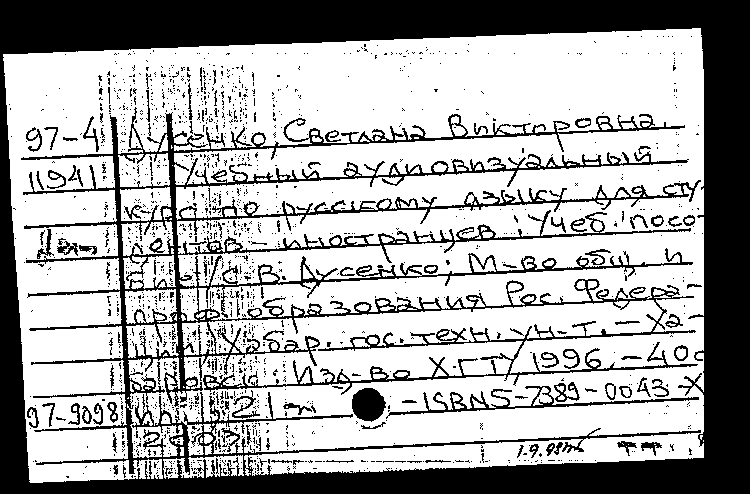 97-4 Дусенко, Светлана Викторовна.
11941 Учебный аудиовизуальный
курс по русскому языку для сту-
дентов - иностранцев : Учеб. посо-
бие / С. В. Дусенко; М-во общ. и
проф. образования Рос. Федера-
ции, Хабар. гос. техн. ун-т. - Ха-
баровск : Изд-во ХГТУ, 1996. - 40с
97-9098 ил.; 21 - ISBN 5-7389-0043-X
1.9.98